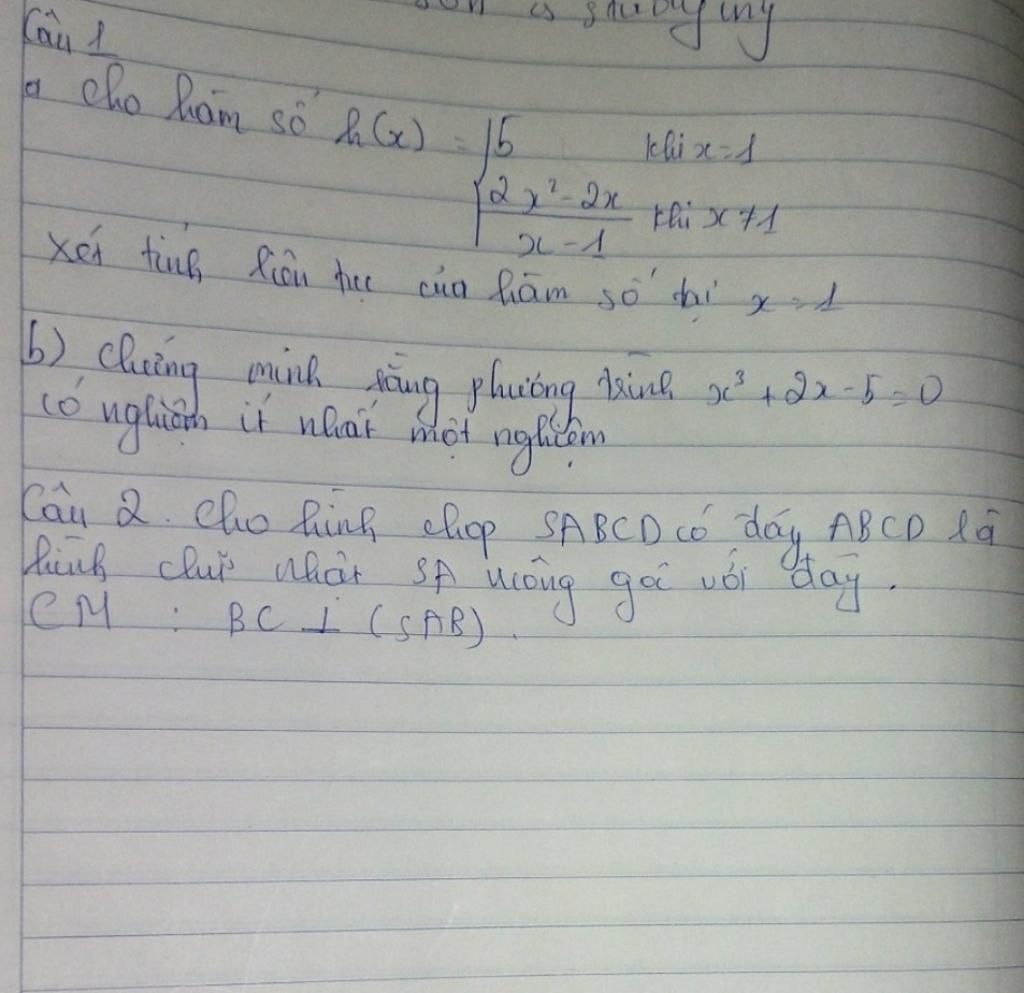 is studying
Câu 1
a cho hàm số h(x) = { 5 khi x = 1
2x² - 2x / x - 1 khi x ≠ 1
xét tính liên tục của hàm số tại x = 1
b) chứng minh rằng phương trình x³ + 2x - 5 = 0
có nghiệm ít nhất một nghiệm
Câu 2. Cho hình chop SABCD có đáy ABCD là
hình chữ nhật SA vuông góc với đáy.
CM : BC ⊥ (SAB).